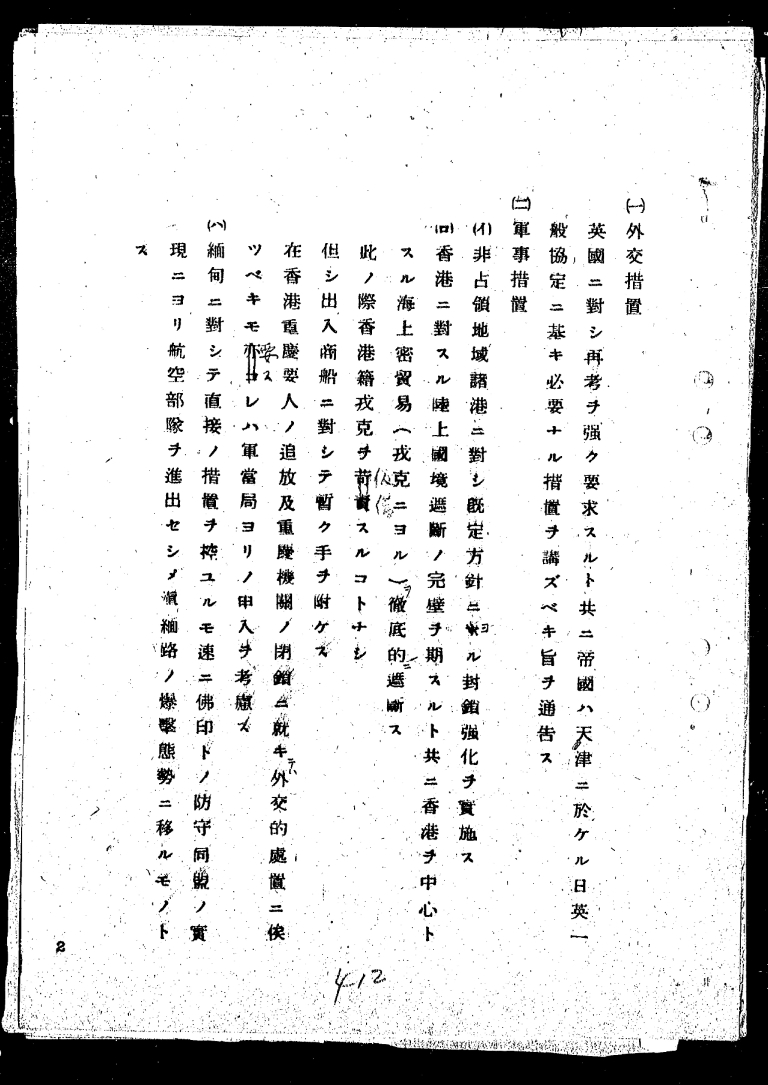 ㈠外交措置
英國ニ對シ再考ヲ强ク要求スルト共ニ帝國ハ天津ニ於ケル日英一
般協定ニ基キ必要ナル措置ヲ講ズベキ旨ヲ通告ス
㈡軍事措置
(イ)非占領地域諸港ニ對シ既定方針ニヨル封鎖强化ヲ實施ス
(ロ)香港ニ對スル陸上國境遮斷ノ完璧ヲ期スルト共ニ香港ヲ中心ト
スル海上密貿易(戎克ニヨル)ヲ徹底的ニ遮斷ス
此ノ際香港籍戎克ヲ苛責スルコトナシ
但シ出入商船ニ對シテ暫ク手ヲ附ケス
在香港重慶要人ノ追放及重慶機關ノ閉鎖ニ就キテハ外交的處置ニ俟
ツベキモ要スレハ軍當局ヨリノ申入ヲ考慮ス
(ハ)緬甸ニ對シテ直接ノ措置ヲ控ユルモ速ニ佛印トノ防守同盟ノ實
現ニヨリ航空部隊ヲ進出セシメ滇緬路ノ爆擊態勢ニ移ルモノト
ス
2
412